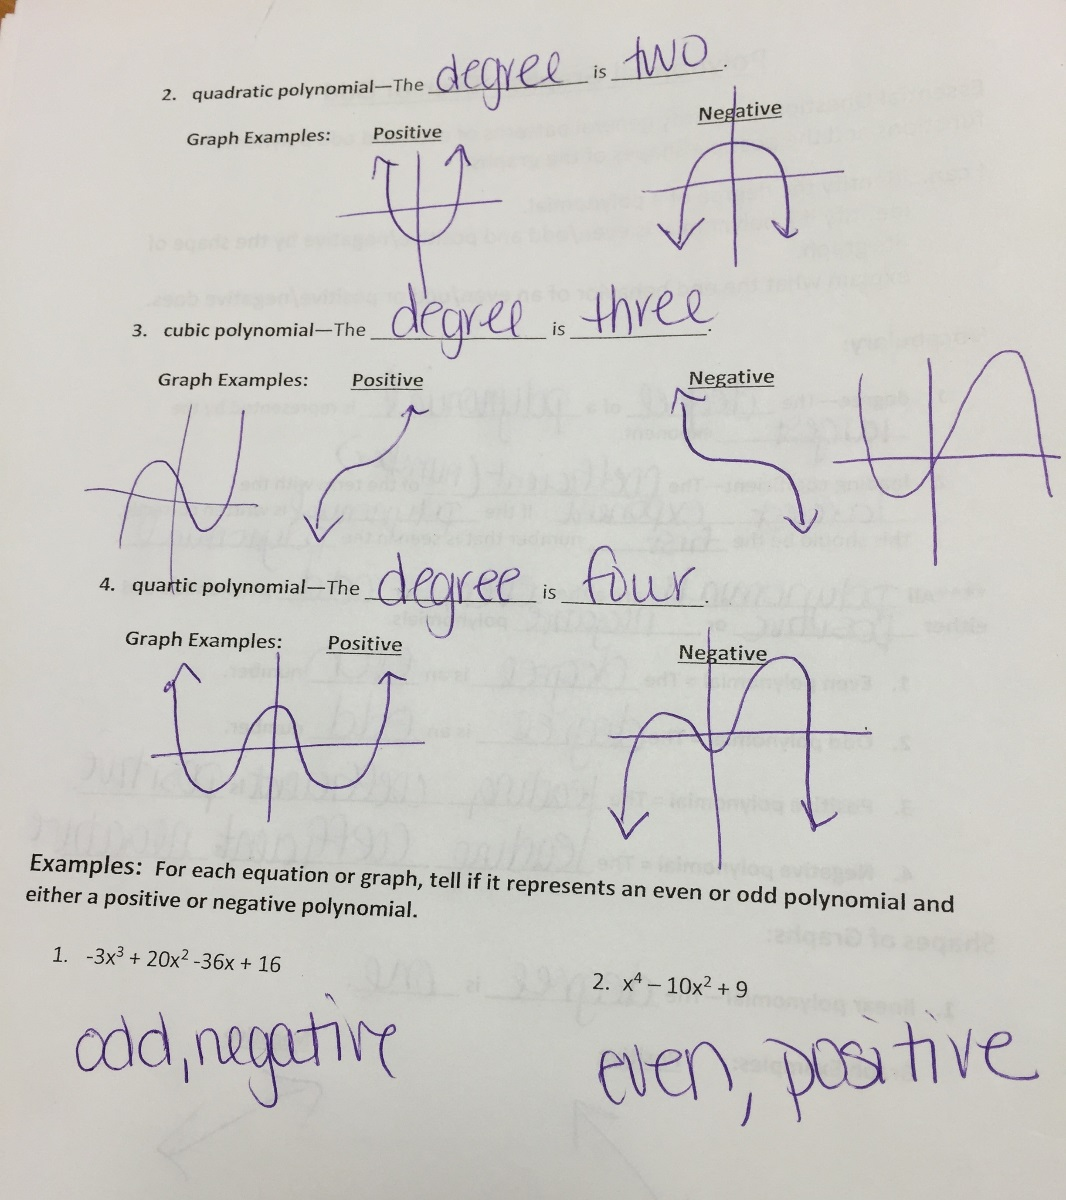 2. quadratic polynomial—The degree is two.
Graph Examples: Positive Negative
3. cubic polynomial—The degree is three.
Graph Examples: Positive Negative
4. quartic polynomial—The degree is four.
Graph Examples: Positive Negative
Examples: For each equation or graph, tell if it represents an even or odd polynomial and
either a positive or negative polynomial.
1. -3x³ + 20x² -36x + 16
2. x⁴ – 10x² + 9
odd, negative
even, positive